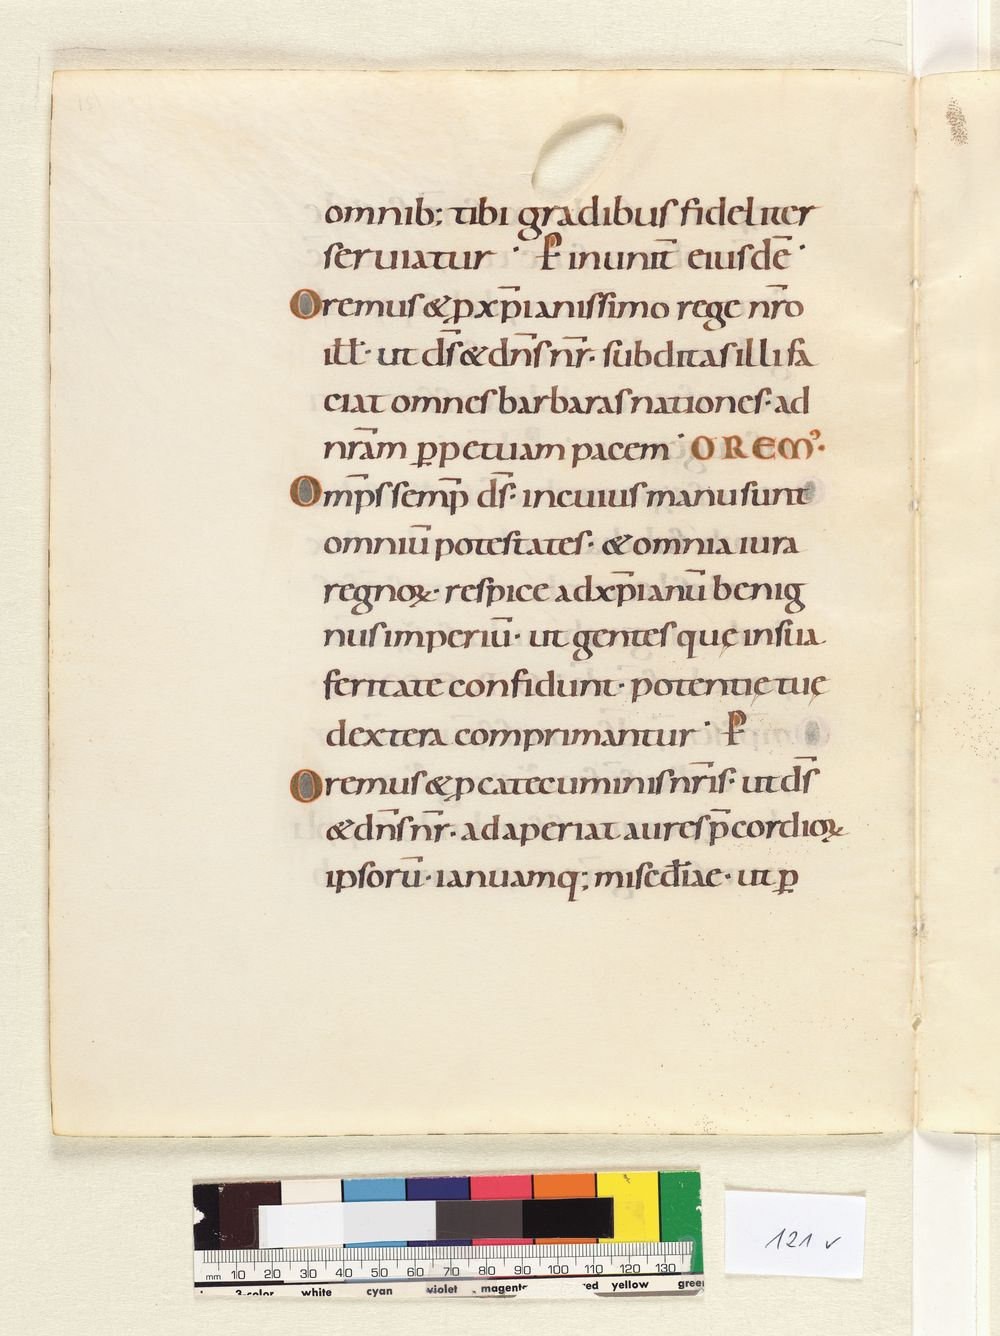 omnib; tibi gradibus fideliter
seruiatur · P̄ in unit̄ eiusdē ·
Oremus & ꝓ xp̄ianissimo rege nr̄o
ill̄ · ut ds̄ & dn̄s nr̄ · subditas illi fa
ciat omnes barbaras nationes · ad
nr̄am ꝑpetuam pacem · OREMꝰ ·
Omp̄s semp̄ ds̄ · in cuius manu sunt
omniū potestates · & omnia iura
regnoꝝ · respice ad xp̄ianū benig
nus imperiū · ut gentes quę in sua
feritate confidunt · potentię tuę
dextera comprimantur · P̄
Oremus & ꝓ catecuminis nr̄is · ut ds̄
& dn̄s nr̄ · adaperiat aures p̄cordioꝝ
ipsorū · ianuamq; misedīae · ut ꝑ
121 v
mm 10 20 30 40 50 60 70 80 90 100 110 120 130
3-color white cyan violet magenta red yellow green